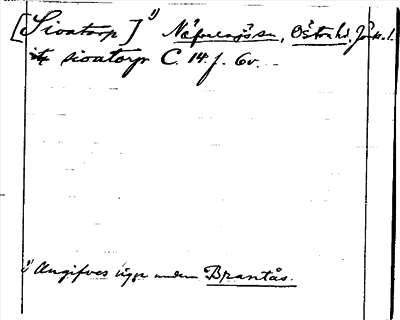 [Sioatorp] 1) Näfvelsjö sn, Östra hd, Jönk. l.
sioatorp C. 14. f. 6v.
1) Angifves ligga under Brantås.